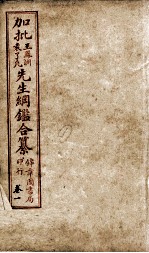 加批王鳳洲袁了凡先生綱鑑合纂
錦章圖書局印行
卷一